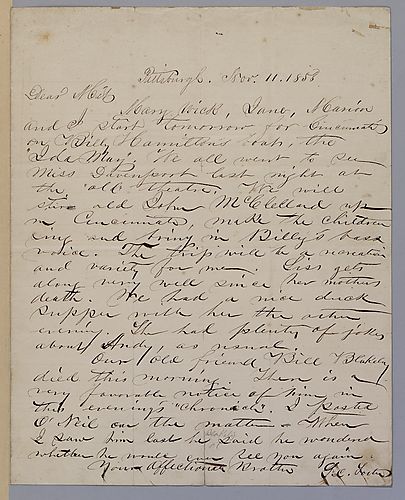 Pittsburgh. Nov. 11. 1858
Dear Mit
Mary Wick, Jane, Marion
and I start tomorrow for Cincinnati
on Billy Hamilton's boat, the
'Ida May'. We all went to see
Miss Davenport last night at
the old theatre. We will
stir old John McClelland up
in Cincinnati, make the children
sing and bring in Billy's bass
voice. The trip will be a recreation
and variety for me. Siss gets
along very well since her mothers
death. We had a nice duck
supper with her the other
evening. She had plenty of jokes
about Andy, as usual.
Our old friend Bill Blakely
died this morning. There is a
very favorable notice of him in
this evenings "Chronicle". I posted
O'Neil on the matter. When
I saw him last he said he wondered
whether he would ever see you again.
Your affectionate Brother